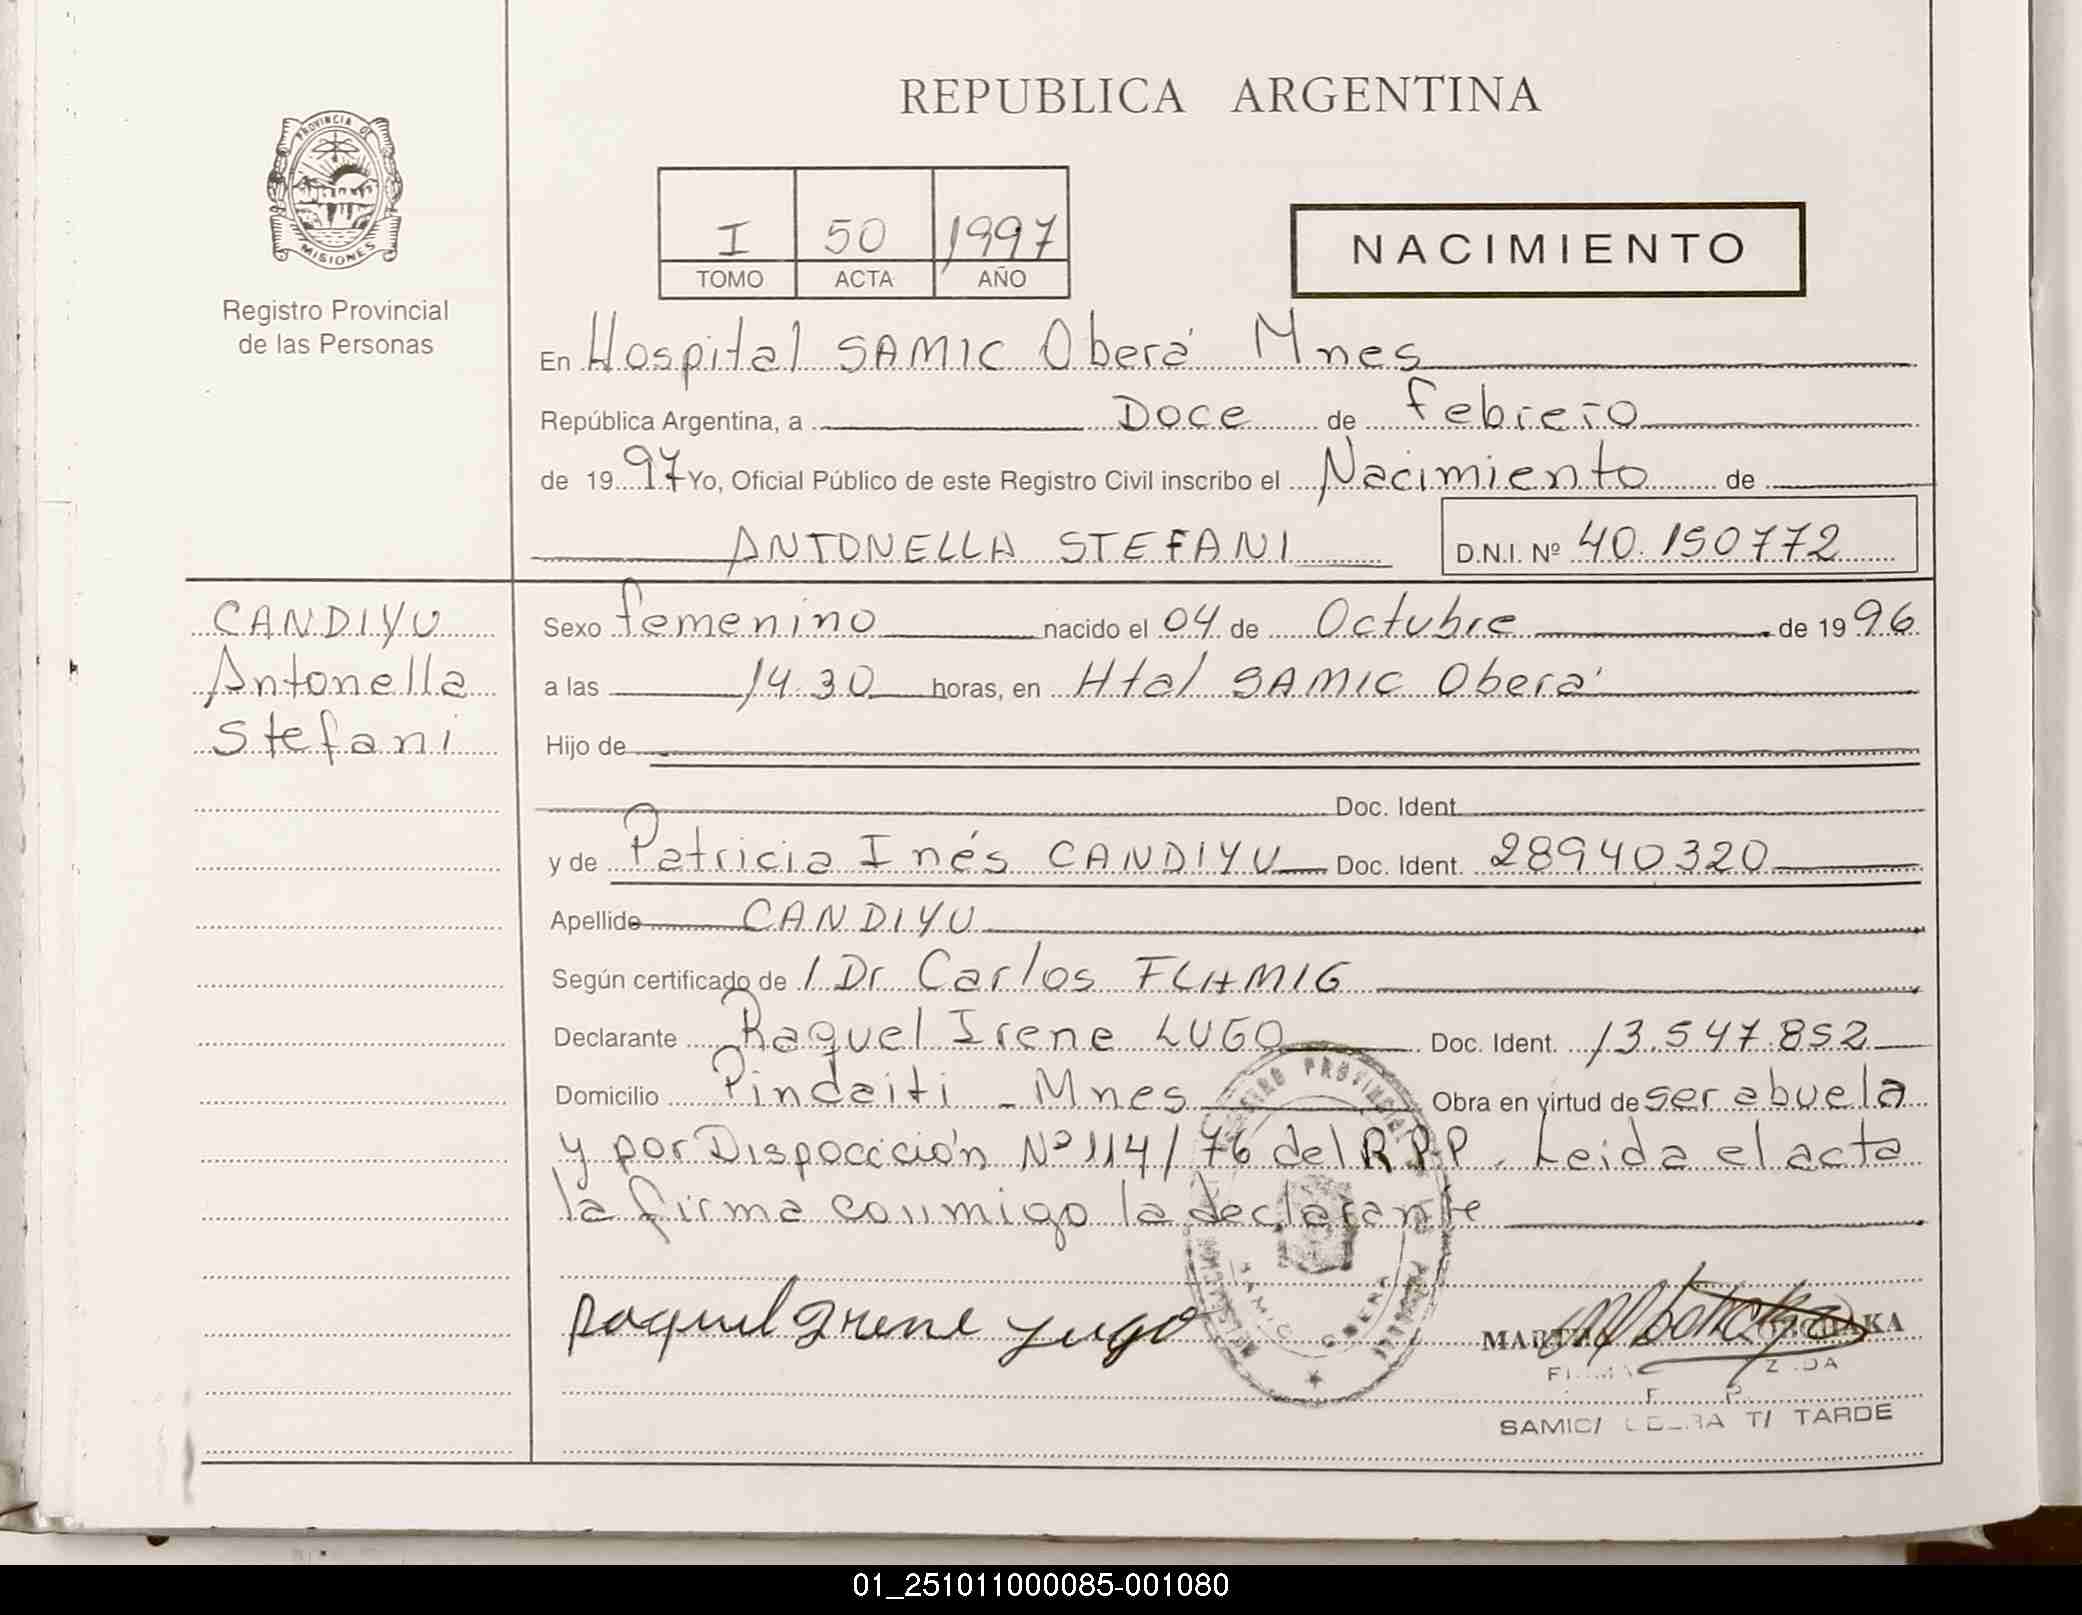 REPUBLICA ARGENTINA
PROVINCIA DE
MISIONES
Registro Provincial
de las Personas
I 50 1997
TOMO ACTA AÑO
NACIMIENTO
En Hospital SAMIC Oberá Mnes
República Argentina, a Doce de febrero
de 1997 Yo, Oficial Público de este Registro Civil inscribo el Nacimiento de
ANTONELLA STEFANI D.N.I. Nº 40.150772
CANDIYU
Antonella
Stefani
Sexo femenino nacido el 04 de Octubre de 1996
a las 14 30 horas, en Htal SAMIC Oberá
Hijo de
Doc. Ident.
y de Patricia Inés CANDIYU Doc. Ident. 28940320
Apellido CANDIYU
Según certificado de / Dr Carlos FLAMIG
Declarante Raquel Irene LUGO Doc. Ident. 13.547.852
Domicilio Pindaiti - Mnes Obra en virtud de ser abuela
y por Dispocición Nº 114/76 del R.P.P. Leida el acta
la firma conmigo la declarante
Raquel Irene Lugo
SAMIC TARDE
01_251011000085-001080